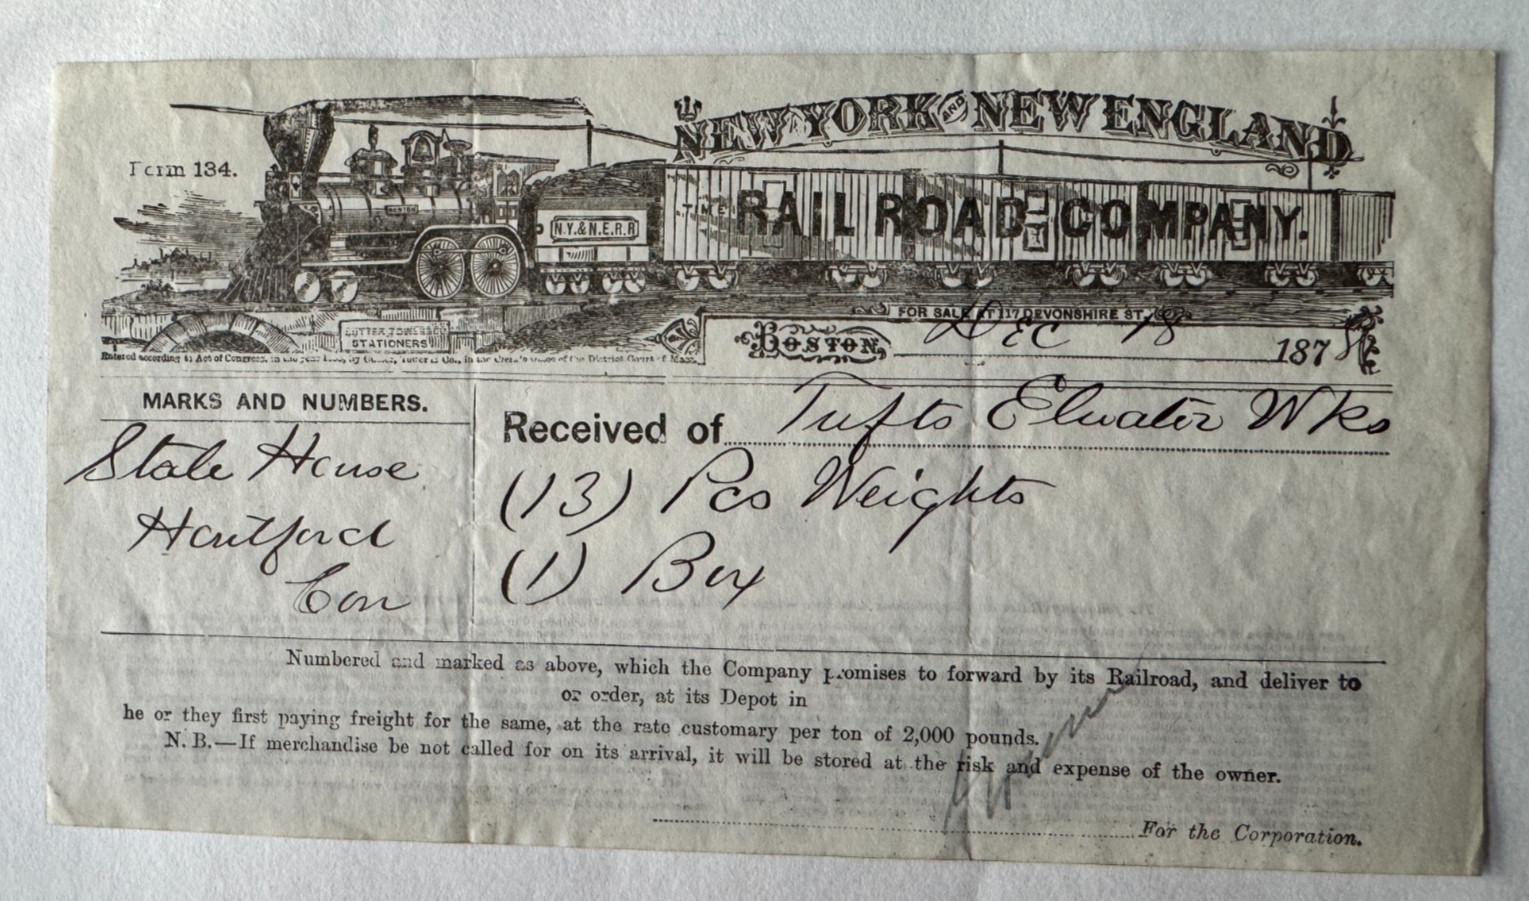 NEW YORK AND NEW ENGLAND
Form 134.
THE RAIL ROAD COMPANY.
N.Y.& N.E.R.R
BOSTON
FOR SALE AT 117 DEVONSHIRE ST.
CUTTER TOWER & CO
STATIONERS
BOSTON, Dec 18 1878
Entered according to Act of Congress, in the year by Cutter, Tower & Co., in the Clerk's Office of the District Court of Mass.
MARKS AND NUMBERS.
State House
Hartford
Con
Received of Tufts Elevator Wks
(13) Pcs Weights
(1) Box
Numbered and marked as above, which the Company promises to forward by its Railroad, and deliver to
or order, at its Depot in
he or they first paying freight for the same, at the rate customary per ton of 2,000 pounds.
N. B.—If merchandise be not called for on its arrival, it will be stored at the risk and expense of the owner.
For the Corporation.